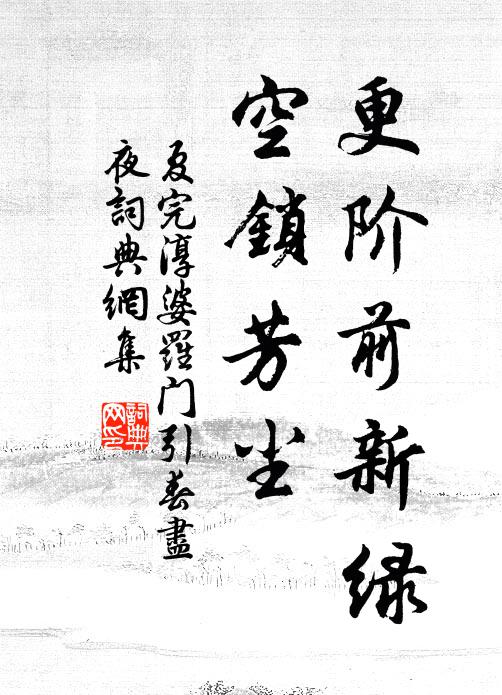 更阶前新绿
空鎖芳尘
夏完淳婆羅门引春盡
夜詞典網集
詞典网印